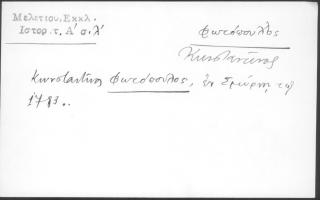 Μελετίου, Εκκλ.
Ιστορ. τ. Α' σ. λ'
Φωτόπουλος
Κωνσταντίνος
Κωνσταντίνος Φωτόπουλος, ἐν Σμύρνῃ τῷ
1783.